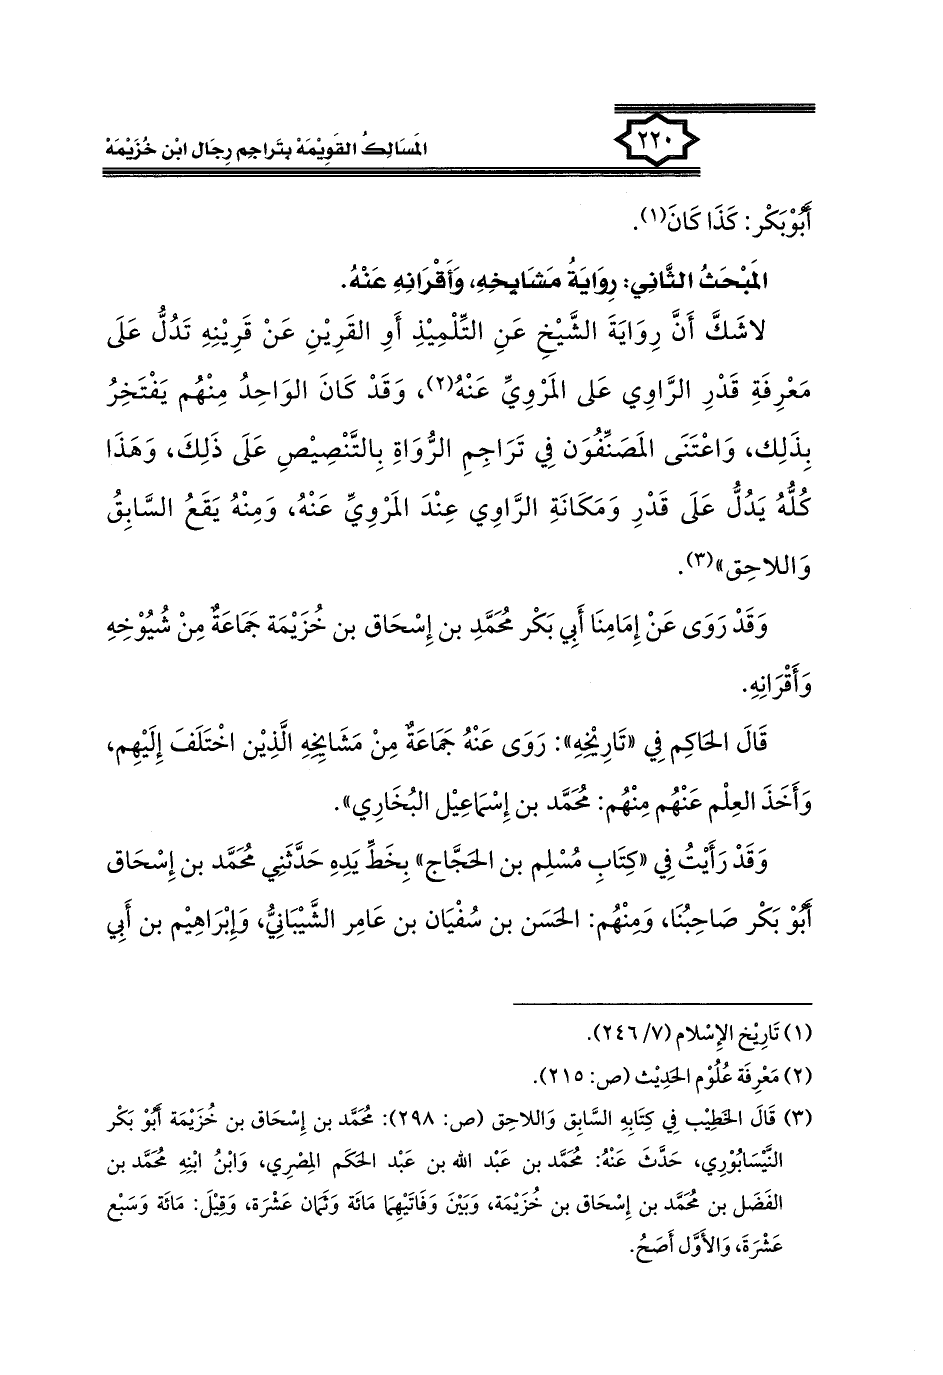 المَسَالِكُ القَوِيْمَةْ بِتَراجِم رِجَال ابْن خُزَيْمَةْ
٢٢٠
أَبُوْ بَكْر: كَذَا كَانَ(١).
المَبْحَثُ الثَّانِي: رِوَايَةُ مَشَايِخِهِ، وَأَقْرَانِهِ عَنْهُ.
لاشَكَّ أَنَّ رِوَايَةَ الشَّيْخِ عَنِ التِّلْمِيْذِ أَوِ القَرِيْنِ عَنْ قَرِيْنِهِ تَدُلُّ عَلَى
مَعْرِفَةِ قَدْرِ الرَّاوِي عَلى المَرْوِيِّ عَنْهُ(٢)، وَقَدْ كَانَ الوَاحِدُ مِنْهُم يَفْتَخِرُ
بِذَلِك، وَاعْتَنَى المَصَنِّفُوَن فِي تَرَاجِمِ الرُّوَاةِ بِالتَّنْصِيْصِ عَلَى ذَلِكَ، وَهَذَا
كُلُّهُ يَدُلُّ عَلَى قَدْرِ وَمَكَانَةِ الرَّاوِي عِنْدَ المَرْوِيِّ عَنْهُ، وَمِنْهُ يَقَعُ السَّابِقُ
وَاللاحِق»(٣).
وَقَدْ رَوَى عَنْ إِمَامِنَا أَبِي بَكْر مُحَمَّدِ بن إِسْحَاق بن خُزَيْمَة جَمَاعَةٌ مِنْ شُيُوْخِهِ
وَأَقْرَانِهِ.
قَالَ الحَاكِم فِي «تَارِيْخِهِ»: رَوَى عَنْهُ جَمَاعَةٌ مِنْ مَشَايِخِهِ الَّذِيْن اخْتَلَفَ إِلَيْهِم،
وَأَخَذَ العِلْم عَنْهُم مِنْهُم: مُحَمَّد بن إِسْمَاعِيْل البُخَارِي».
وَقَدْ رَأَيْتُ فِي «كِتَابِ مُسْلِم بن الحَجَّاج» بِخَطِّ يَدِهِ حَدَّثَنِي مُحَمَّد بن إِسْحَاق
أَبُوْ بَكْر صَاحِبُنَا، وَمِنْهُم: الحَسَن بن سُفْيَان بن عَامِر الشَّيْبَانِيُّ، وَإِبْرَاهِيْم بن أَبِي
(١) تَارِيْخ الإِسْلام (٧/ ٢٤٦).
(٢) مَعْرِفَة عُلُوْم الحَدِيْث (ص: ٢١٥).
(٣) قَالَ الخَطِيْب فِي كِتَابِهِ السَّابِق وَاللاحِق (ص: ٢٩٨): مُحَمَّد بن إِسْحَاق بن خُزَيْمَة أَبُوْ بَكْر
النَّيْسَابُوْرِي، حَدَّثَ عَنْهُ: مُحَمَّد بن عَبْد الله بن عَبْد الحَكَم المِصْرِي، وَابْنُ ابْنِهِ مُحَمَّد بن
الفَضَل بن مُحَمَّد بن إِسْحَاق بن خُزَيْمَة، وَبَيْنَ وَفَاتَيْهِمَا مَائَة وَثَمَان عَشْرَة، وَقِيْلَ: مَائَة وَسَبْع
عَشْرَةَ، وَالأَوَّل أَصَحُ.